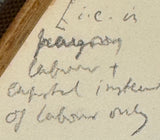 [i.e. in
paying
labour +
capital instead
of labour only